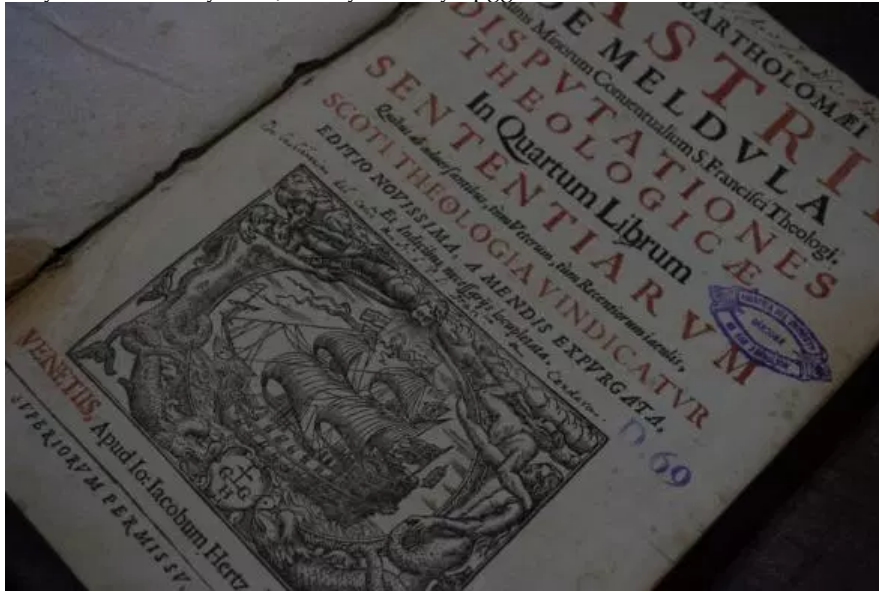 BARTHOLOMÆI
ASTRI
DE MELDVLA
Minorum Conuentualium S. Francisci Theologi,
DISPVTATIONES
THEOLOGICÆ
In Quartum Librum
SENTENTIARVM
Quibus ab aduersantibus, tùm Veterum, tùm Recentiorum iaculis,
SCOTI THEOLOGIA VINDICATVR
EDITIO NOVISSIMA, A MENDIS EXPVRGATA,
Et Indicibus necessarijs locupletata.
D. 69
VENETIIS, Apud Io: Iacobum Hertz
SVPERIORVM PERMISSV